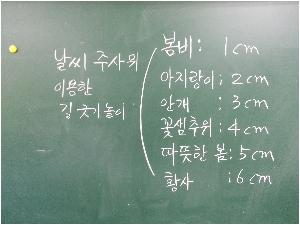 날씨 주사위
이용한
길 긋기 놀이
봄비: 1cm
아지랑이: 2cm
안개 : 3cm
꽃샘추위: 4cm
따뜻한 봄: 5cm
황사 : 6cm